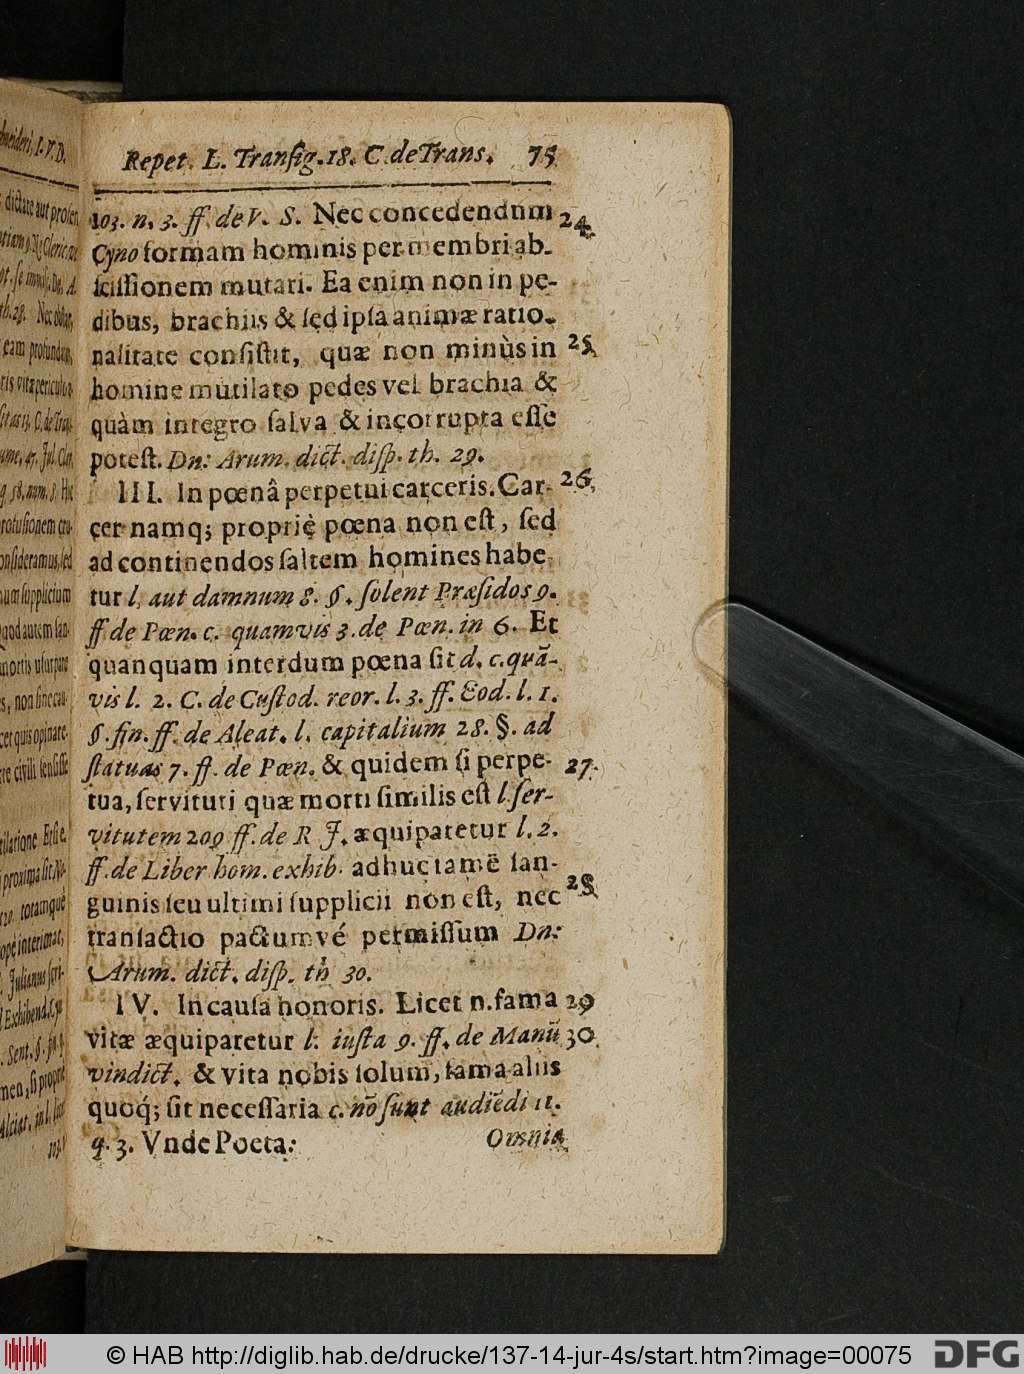 Repet. L. Transig. 18. C. de Trans. 75
103. n. 3. ff. de V. S. Nec concedendum 24
Cyno formam hominis per membri ab-
scissionem mutari. Ea enim non in pe-
dibus, brachiis & sed ipsa animæ ratio-
nalitate consistit, quæ non minùs in 25
homine mutilato pedes vel brachia &
quàm integro salva & incorrupta esse
potest. Dn: Arum. dict. disp. th. 29.
III. In pœnâ perpetui carceris. Car- 26
cer namq; propriè pœna non est, sed
ad continendos saltem homines habe-
tur l. aut damnum 8. §. solent Præsidos 9.
ff de Pœn. c. quamvis 3. de Pœn. in 6. Et
quanquam interdum pœna sit d. c. quã-
vis l. 2. C. de Custod. reor. l. 3. ff. Eod. l. 1.
§. fin. ff. de Aleat. l. capitalium 28. §. ad
statuas 7. ff. de Pœn. & quidem si perpe- 27.
tua, servituti quæ morti similis est l. ser-
vitutem 209 ff. de R J. æquiparetur l. 2.
ff. de Liber hom. exhib. adhuc tamẽ san-
guinis seu ultimi supplicii non est, nec 28
transactio pactumvé permissum Dn:
Arum. dict. disp. th 30.
IV. In causa honoris. Licet n. fama 29
vitæ æquiparetur l. iusta 9. ff. de Manũ 30
vindict. & vita nobis solum, fama aliis
quoq́; sit necessaria c. nõ sunt audiẽdi 11.
q. 3. Vnde Poeta:
Omnia
© HAB http://diglib.hab.de/drucke/137-14-jur-4s/start.htm?image=00075
DFG